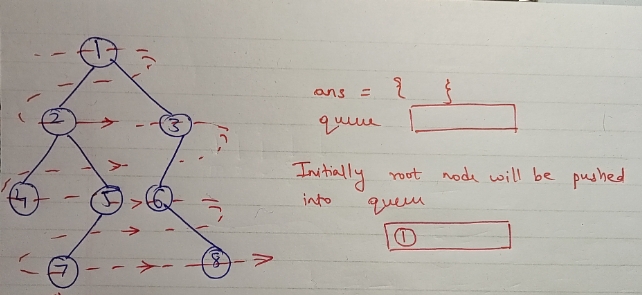 1
2 3
4 5 6
7 8
ans = { }
queue
Initially root node will be pushed
into queue
1